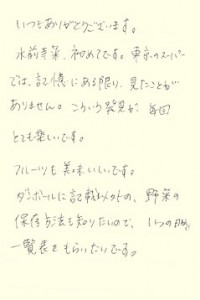 いつもありがとうございます。
水前寺菜、初めてです。東京のスーパー
では、記憶にある限り、見たことが
ありません。こういう発見が毎回
とても楽しいです。
フルーツも美味しいです。
ダンボールに記載以外の、野菜の
保存方法を知りたいので、1つの
一覧表をもらいたいです。